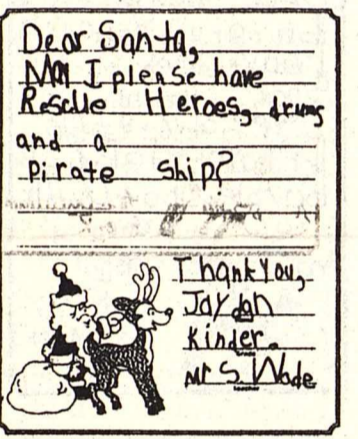 Dear Santa,
May I please have
Rescue Heroes, drums
and a
pirate ship?
Thank You,
Jaydan
Kinder.
Mrs Wade
teacher